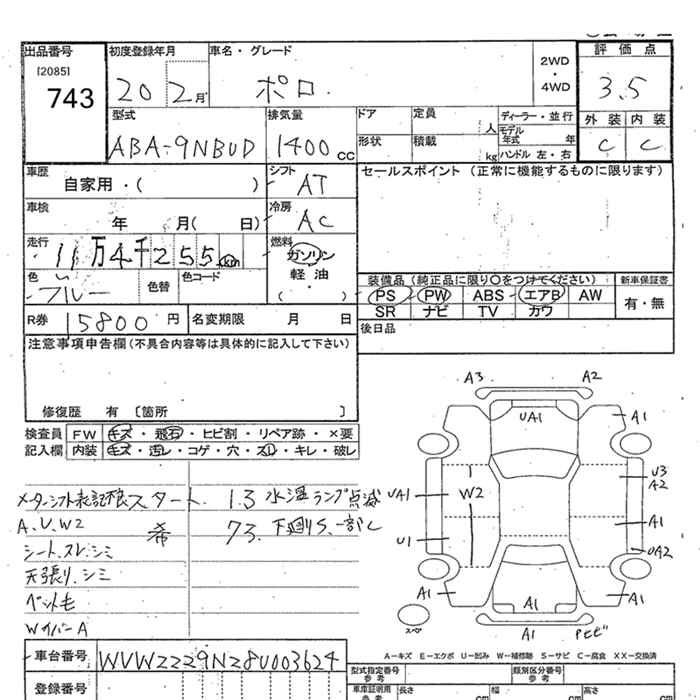 出品番号
[2085]
743
初度登録年月
20 2月
車名・グレード
ポロ
2WD
・
4WD
評価点
3.5
外装 内装
C C
型式
ABA-9NBUD
排気量
1400 cc
ドア
形状
定員
人
積載
kg
ディーラー・並行
モデル年式 年
ハンドル 左・右
車歴
自家用・( )
シフト
AT
セールスポイント (正常に機能するものに限ります)
車検
年 月( 日)
冷房
AC
走行
11万4千255km
燃料
ガソリン
軽油
( ・ )
色
ブルー
色替
色コード
装備品 (純正品に限り〇をつけてください)
PS PW ABS エアB AW
SR ナビ TV カワ
新車保証書
有・無
R券 15800円
名変期限 月 日
後日品
注意事項申告欄(不具合内容等は具体的に記入して下さい)
修復歴 有 [箇所 ]
検査員 FW キズ・飛石・ヒビ割・リペア跡・×要
記入欄 内装 キズ・汚レ・コゲ・穴・スレ・キレ・破レ
メーターシフト表記不良 スタート 1.3 水温ランプ点滅
A、U、W2 希 73. 下廻りS、一部C
シート、スレ、シミ
天張り、シミ
ペット毛
WイパーA
A3 A2
UA1 A1
U3
A2
UA1 W2
A1
U1 UA2
A1 A1
A1
スペア
A－キズ E－エクボ U－凹み W－補修跡 S－サビ C－腐食 XX－交換済
車台番号 WVWZZZ9NZ8U003624
登録番号
型式指定番号
参考
類別区分番号
参考
車庫証明用
参考
長さ cm
幅 cm
高さ cm